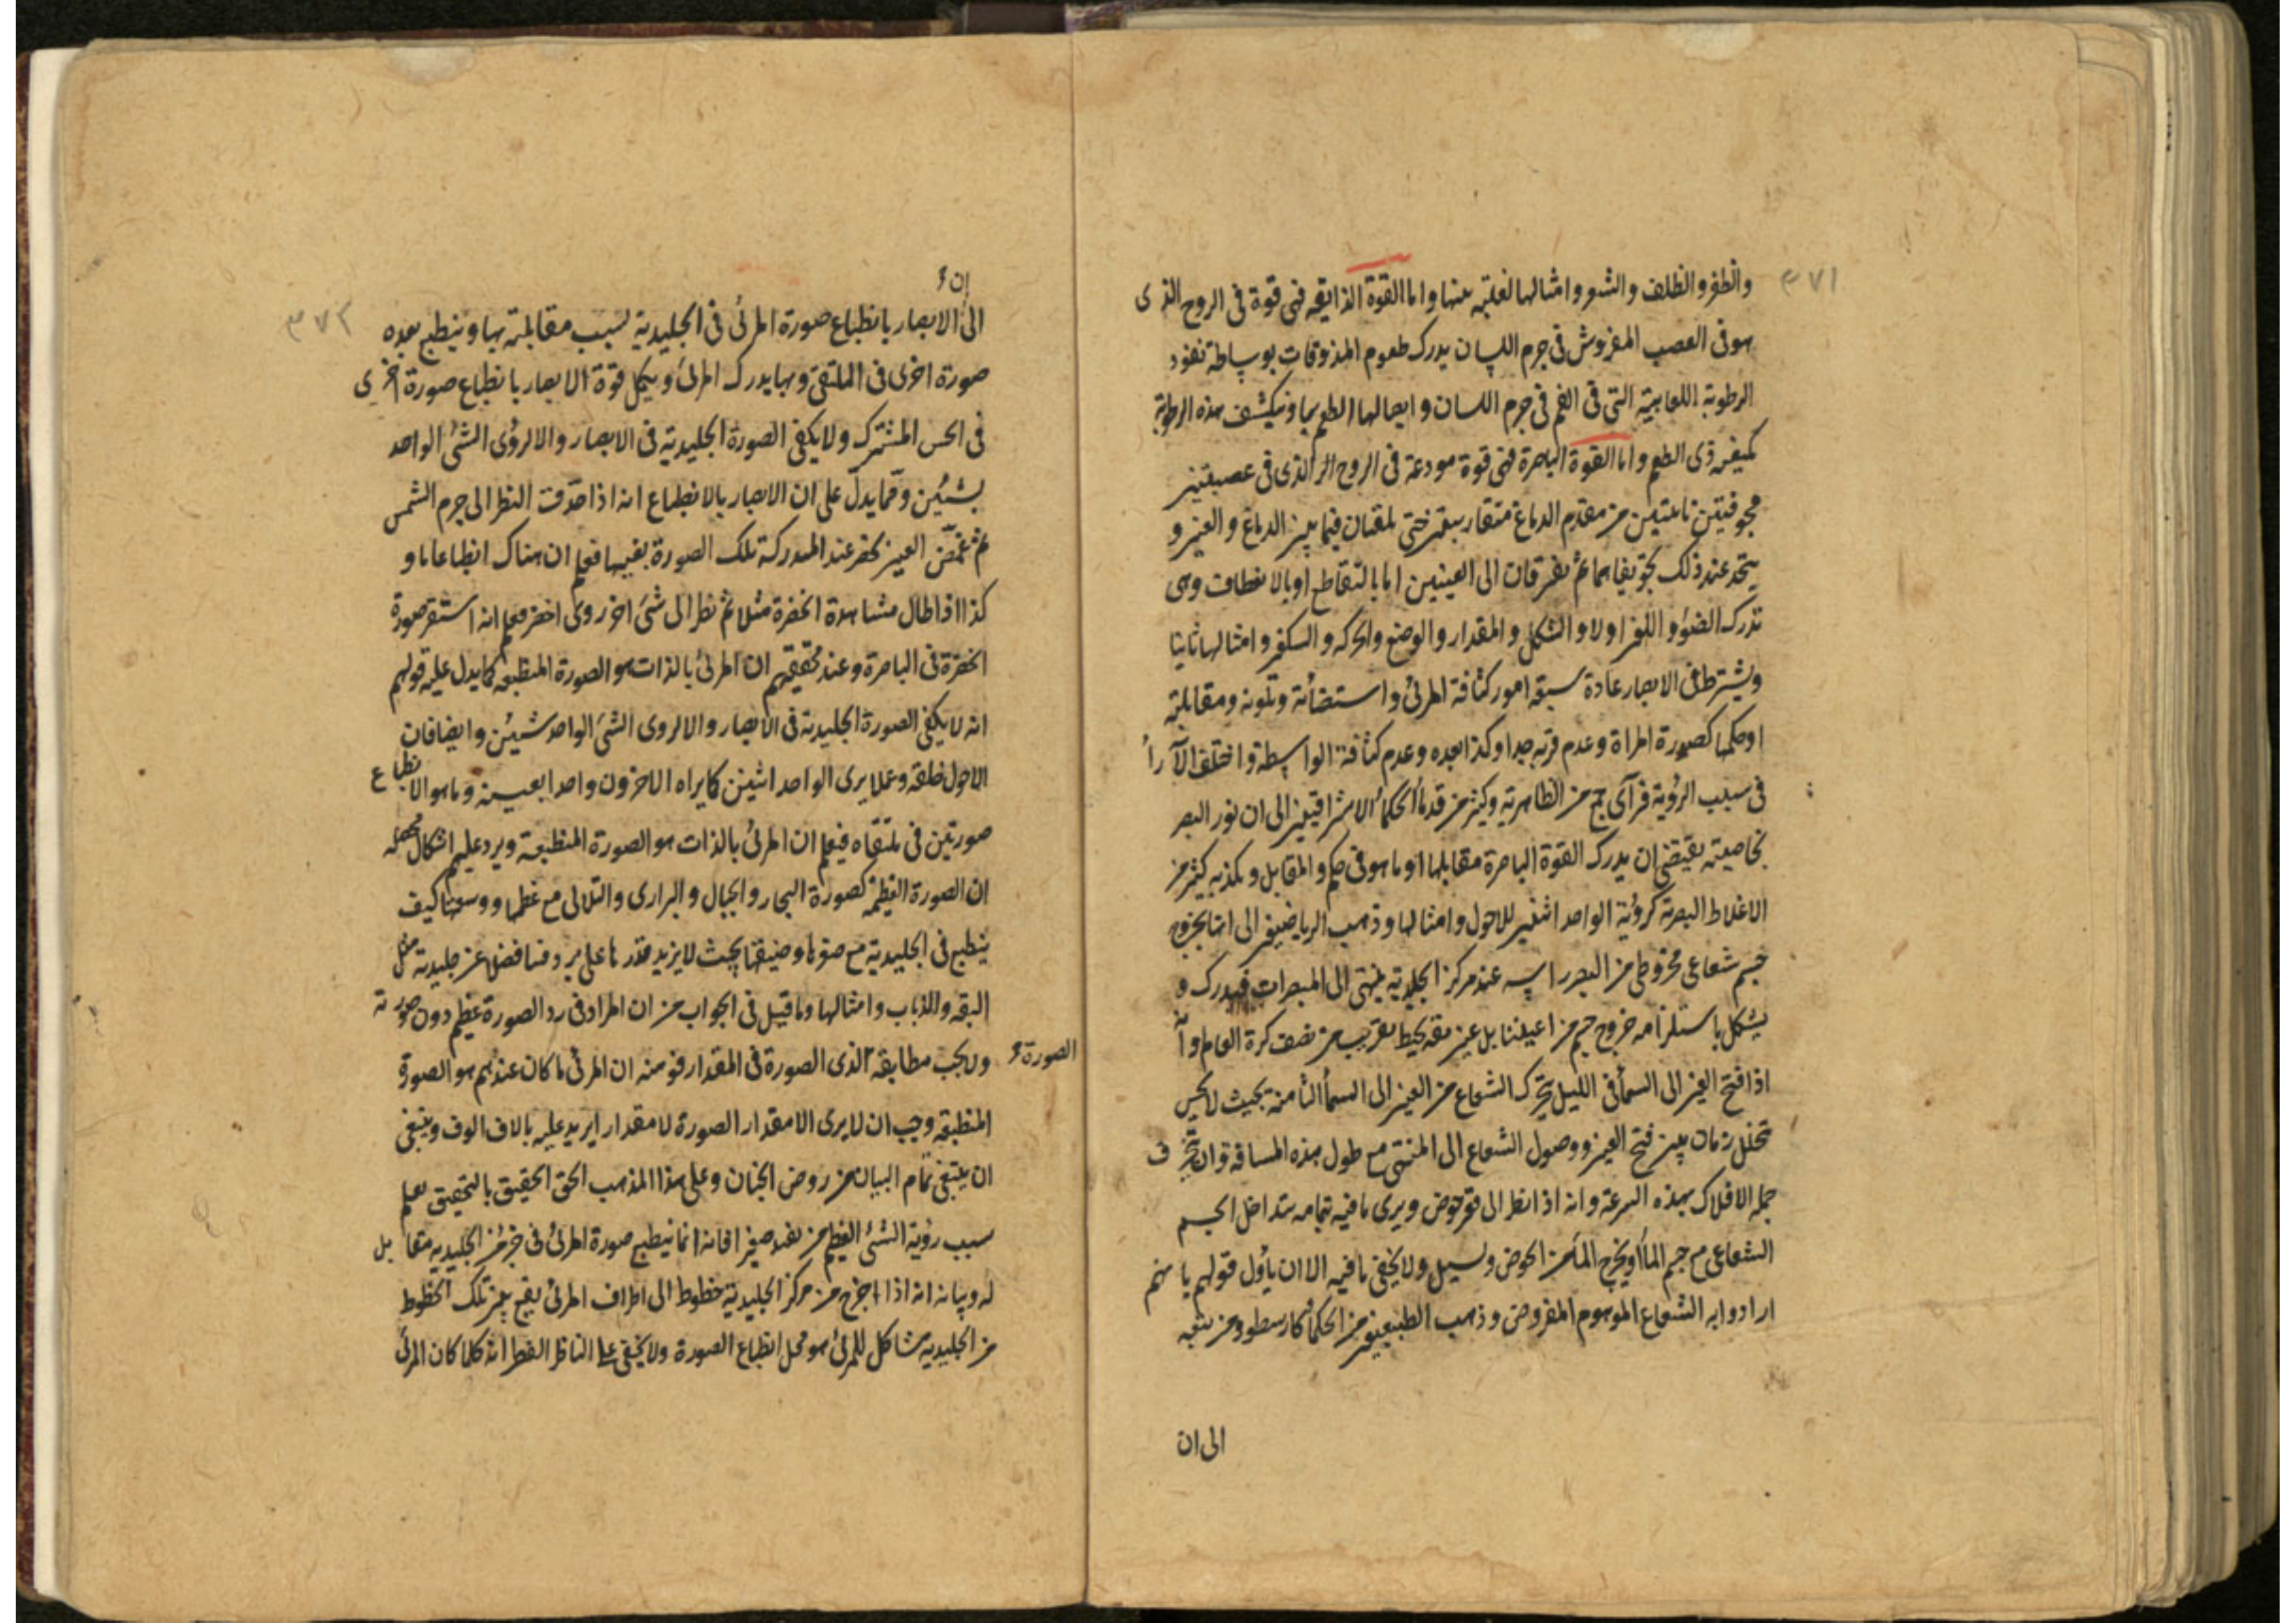 ٣٧١
والظفر والظلف والشعر وامثالها لغلبته عنها واما القوة الذايقه فهى قوة فى الروح الذى
هو فى العصب المفروش فى جرم اللسان يدرك طعوم المذوقات بوساطة نفوذ
الرطوبة اللعابية التى فى الفم فى جرم اللسان وايصالها الطعم بها وتيكشف هذه الرطوبة
بكيفية ذى الطعم واما القوة الباصرة فهى قوة مودعة فى الروح الذى فى عصبيتين
مجوفتين نابتتين من مقدم الدماغ متقاربتين حتى يلتقيان فيما بين الدماغ والعين و
يتحد عند ذلك تجويفاهما ثم يفترقان الى العينين اما بالتقاطع او بالانعطاف وهى
تدرك الضوء واللون اولا والشكل والمقدار والوضع والحركه والسكون وامثالها ثانيا
ويشترط فى الابصار عادة سبعة امور كثافة المرئى واستضائة وتلونه ومقابلته
او حكمها كصورة المراة وعدم قربه جدا وكذا بعده وعدم كثافة الواسطة واختلف الآراء
فى سبب الرؤية فرآى جمع من الظاهرية وكثير من قدماء الحكماء الاشراقيين الى ان نور البصر
بخاصيته يقتضى ان يدرك القوة الباصرة مقابلها او ما هو فى حكم المقابل ويكذبه كثير من
الاغلاط البصرية كرؤية الواحد اثنين للاحول وامثالها وذهب الرياضيين الى انها بخروج
جسم شعاعى مخروطى من البصر راسه عند مركز الجليدية ينتهى الى المبصرات فيدرك و
يشكل باستلزامه خروج جسم من اعيننا بل عين بقه يحيط بقريب من نصف كرة العالم وانه
اذا فتح العين الى السماء فى الليل يتحرك الشعاع من العين الى السماء الثامنة بحيث لا يحس
تخلل زمان بين فتح العين ووصول الشعاع الى المنتهى مع طول هذه المسافة وان تخرق
جمله الافلاك بهذه السرعة وانه اذا نظر الى قعر حوض ويرى ما فيه بتمامه يتداخل الجسم
الشعاعى مع جسم الماء او يخرج الماء من الحوض وليسيل ولا يخفى ما فيه الا ان يأول قولهم بانهم
ارادوا به الشعاع الموهوم المفروض وذهب الطبيعيين من الحكماء كارسطو ومن يتبعه
الى ان
٣٧٢
ان
الى الابصار بانطباع صورة المرئى فى الجليدية بسبب مقابلته بها وينطبع بعده
صورة اخرى فى الملتقى وبها يدرك المرئى ويكمل قوة الابصار بانطباع صورة اخرى
فى الحس المشترك ولا يكفى الصورة الجليدية فى الابصار والا لرؤى الشئ الواحد
بشيئين ومما يدل على ان الابصار بالانطباع انه اذا حدقت النظر الى جرم الشمس
ثم غمض العين تحضر عند المدركة تلك الصورة بعينها فعلم ان هناك انطباعا ما و
كذا اذا طال مشاهدة الخضرة مثلا ثم نظر الى شئ اخر روى اخضر فعلم انه استقر صورة
الخضرة فى الباصرة وعند تحقيقهم ان المرئى بالذات هو الصورة المنطبعة كما يدل عليه قولهم
انه لا يكفى الصورة الجليدية فى الابصار والا لروى الشئ الواحد شيئين وايضا فان
الاحول خلقه وعملا يرى الواحد اثنين كما يراه الاخرون واحدا بعينه وما هو الا بانطباع
صورتين فى ملتقاه فيعلم ان المرئى بالذات هو الصورة المنطبعة ويرد عليهم اشكال
ان الصورة العظيمة كصورة البحار والجبال والبرارى والتلالى مع عظمها ووسعتها كيف
ينطبع فى الجليدية مع صغرها وضيقها بحيث لا يزيد قدرها على فضلا عن جليدية مثل
البقه والذباب وامثالها وما قيل فى الجواب من ان المراد فى رد الصورة عظيم دون صورته
ولا يجب مطابقة الذى الصورة فى المقدار فومنه ان المرئى ما كان عندهم هو الصورة
الصورة
المنطبقه وجب ان لا يرى الا مقدار الصورة لا مقدار ايزيد عليه بالاف الوف وينبغى
ان يبتغى تمام البيان من روض الجنان وعلى هذا المذهب الحق الحقيق بالتحقيق يعلم
سبب رؤية الشئ العظيم من بعد صغيرا فانه انما ينطبع صورة المرئى فى جزء من الجليديه مقابل
له وبيانه انه اذا اخرج من مركز الجليدية خطوط الى اطراف المرئى يقع بين تلك الخطوط
من الجليدية مشاكل للمرئى هو محل انطباع الصورة ولا يخفى على الناظر الفطن انه كلما كان المرئى